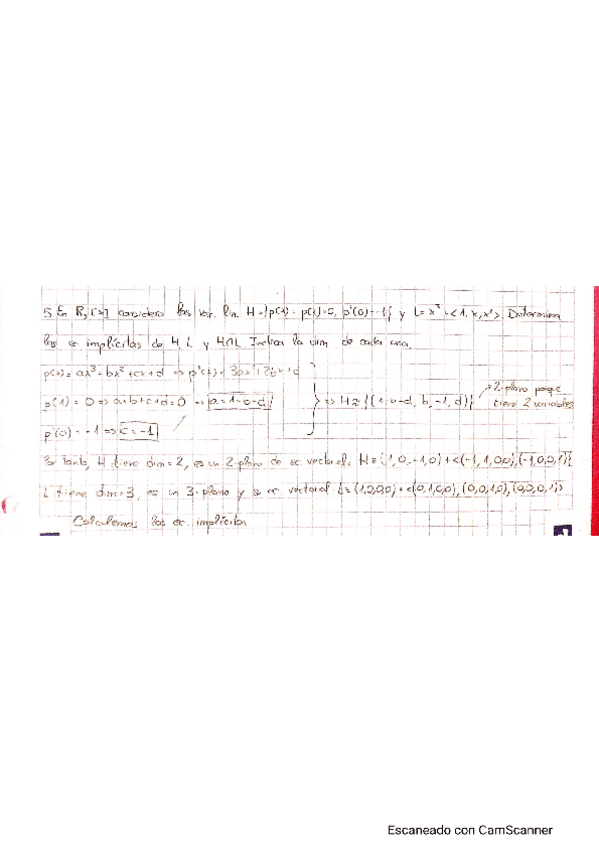 5 En R₃[x] considera las var. lin H={p(x): p(1)=0, p'(0)=-1} y L= x³+<1,x,x²>. Determina
las ec implícitas de H, L y H∩L. Indica la dim de cada una.
p(x)= ax³+bx²+cx+d ⇒ p'(x)= 3ax²+2bx+c
p(1)=0 ⇒ a+b+c+d=0 ⇒ a=1-b-d ⇒ H={(1-b-d, b, -1, d)} 2-plano porque tiene 2 variables
p'(0)=-1 ⇒ c=-1
Por tanto, H tiene dim=2, es un 2-plano de ec vectorial. H={(1,0,-1,0)+<(-1,1,0,0),(-1,0,0,1)>}
L tiene dim=3, es un 3-plano y su ec. vectorial L=(1,0,0,0)+<(0,1,0,0),(0,0,1,0),(0,0,0,1)>
Calculemos las ec. implícitas
Escaneado con CamScanner